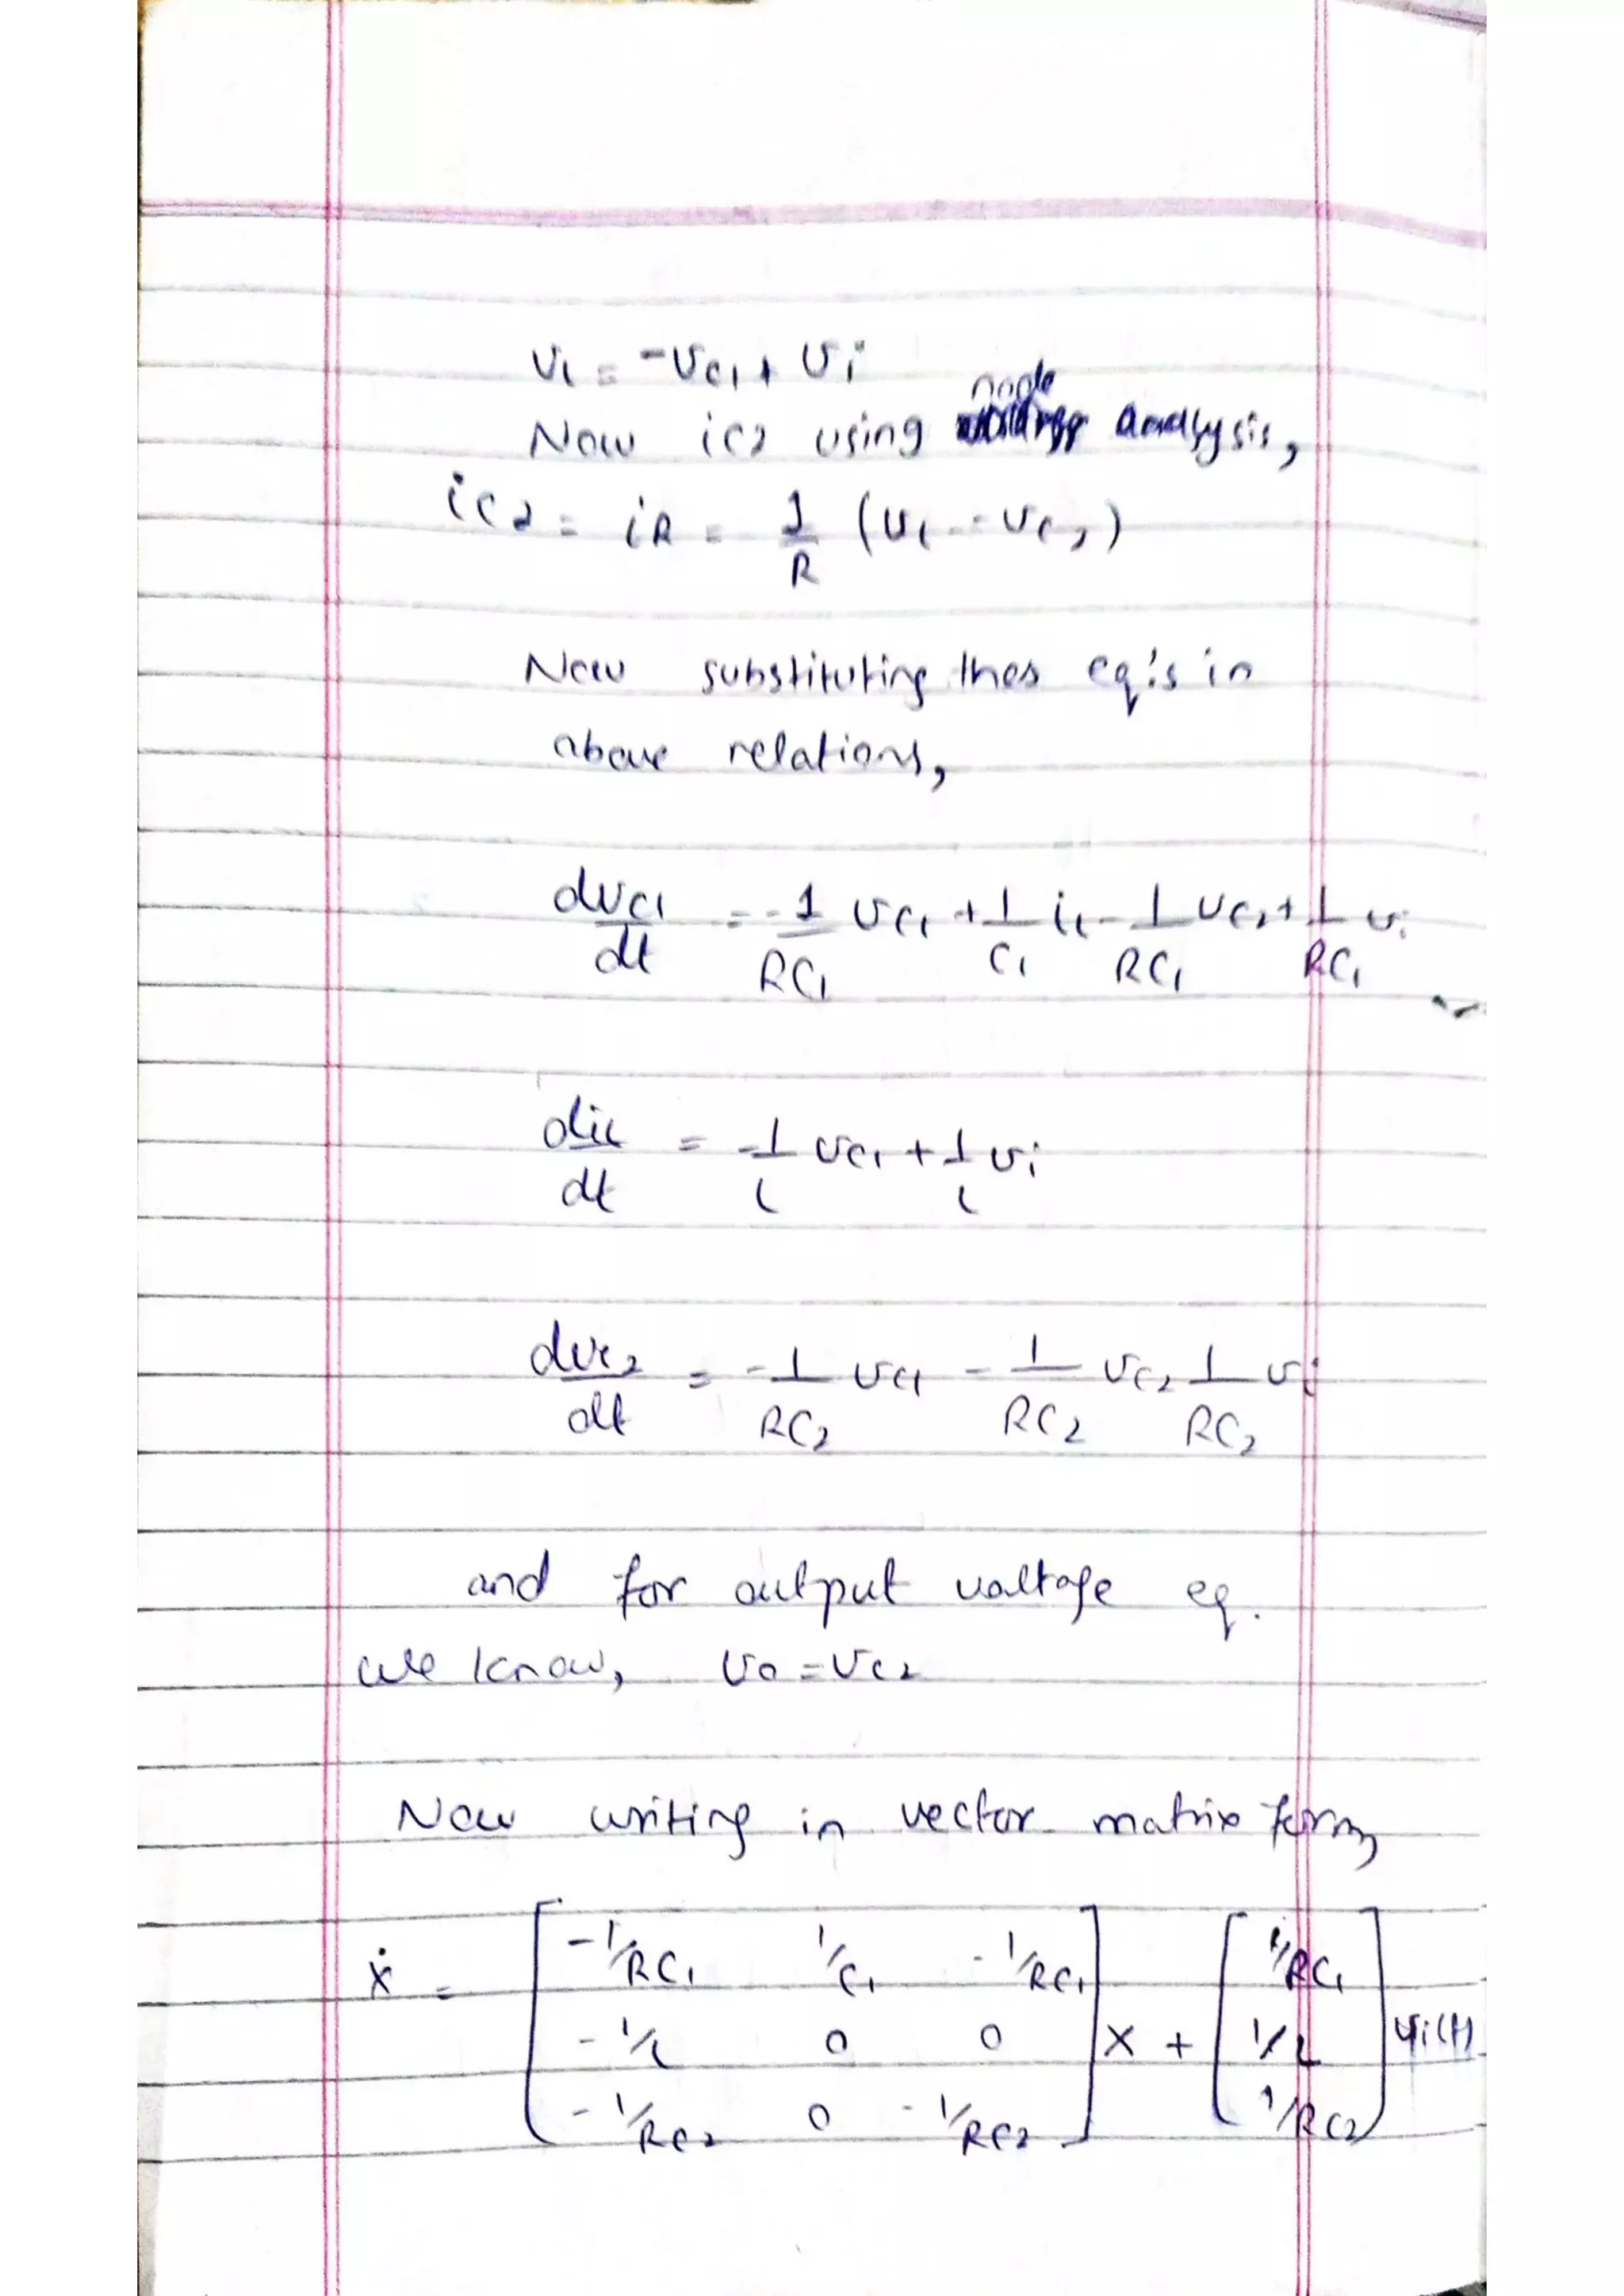 vL = -vC1 + vi
Now iC2 using node analysis,
iC2 = iR = 1/R (vL - vC2)
Now substituting thes eq's in
above relations,
dvC1/dt = -1/RC1 vC1 + 1/C1 iL - 1/RC1 vC2 + 1/RC1 vi
diL/dt = -1/L vC1 + 1/L vi
dvC2/dt = -1/RC2 vC1 - 1/RC2 vC2 1/RC2 vi
and for output voltage eq.
we know, vo = vC2
Now writing in vector matrix form,
Ẋ = [ -1/RC1 1/C1 -1/RC1 ] X + [ 1/RC1 ] vi(t)
-1/L 0 0 1/L
-1/RC2 0 -1/RC2 1/RC2